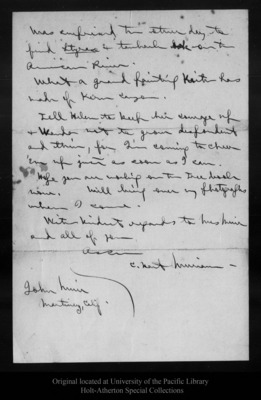 was surprised the other day to
find & to back on the
American River.
What a grand painting Keith has
made of Kings Canyon.
Tell Helen to keep her courage up
& Wanda not to grow despondent
and thin, for I'm coming to cheer
'em up just as soon as I can.
Hope you are on the Tree
Will bring over my photographs
when I come.
With kindest regards to Mrs Muir
and all of you
C. Hart Merriam
John Muir
Martinez, Calif.
Original located at University of the Pacific Library
Holt-Atherton Special Collections